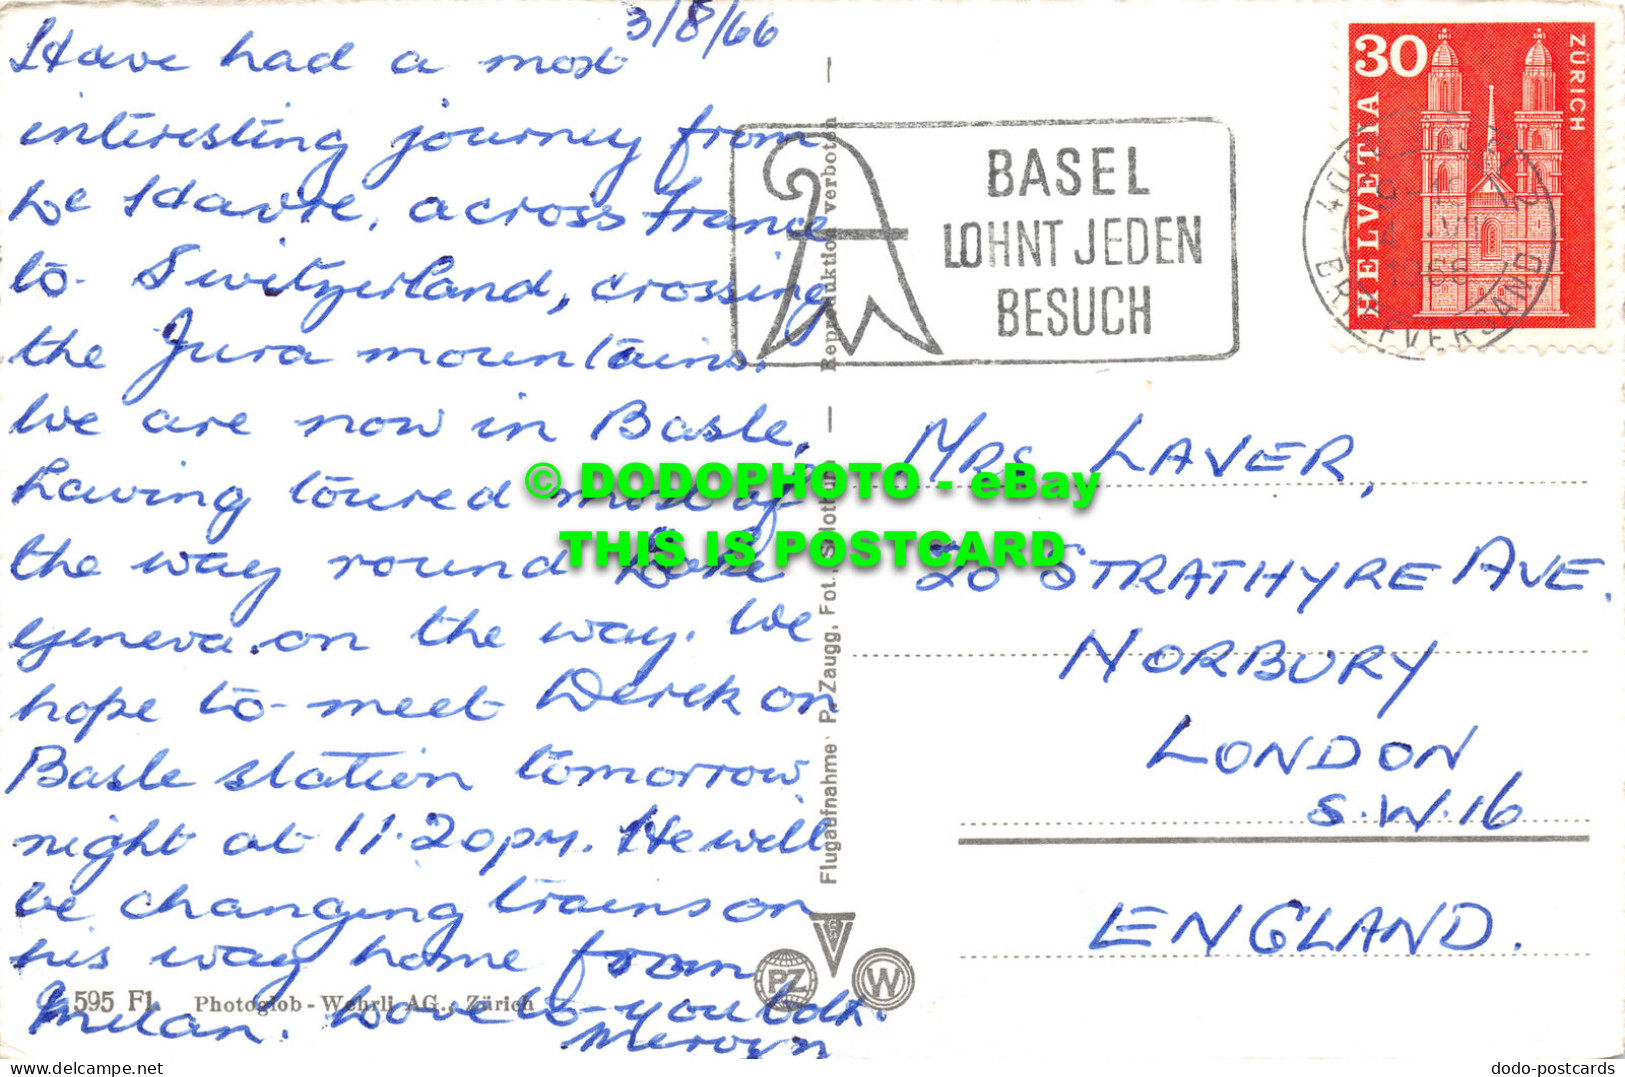 3/8/66
Have had a most
interesting journey from
Le Havre, across France
to Switzerland, crossing
the Jura mountains.
We are now in Basle,
having toured most of
the way round Lake
Geneva on the way. We
hope to meet Derek on
Basle station tomorrow
night at 11.20pm. He will
be changing trains on
his way home from
Milan. Love to you both.
Mervyn
595 Fl. Photoglob-Wehrli AG., Zürich
Flugaufnahme P. Zaugg, Fot., Solothurn — Reproduktion verboten —
PZ
W
BASEL
LOHNT JEDEN
BESUCH
30
HELVETIA
ZÜRICH
1966
BRIEFVERSAND
MRS LAVER,
20 STRATHYRE AVE.
NORBURY
LONDON
S.W.16
ENGLAND.
© DODOPHOTO - eBay
THIS IS POSTCARD
delcampe.net
dodo-postcards